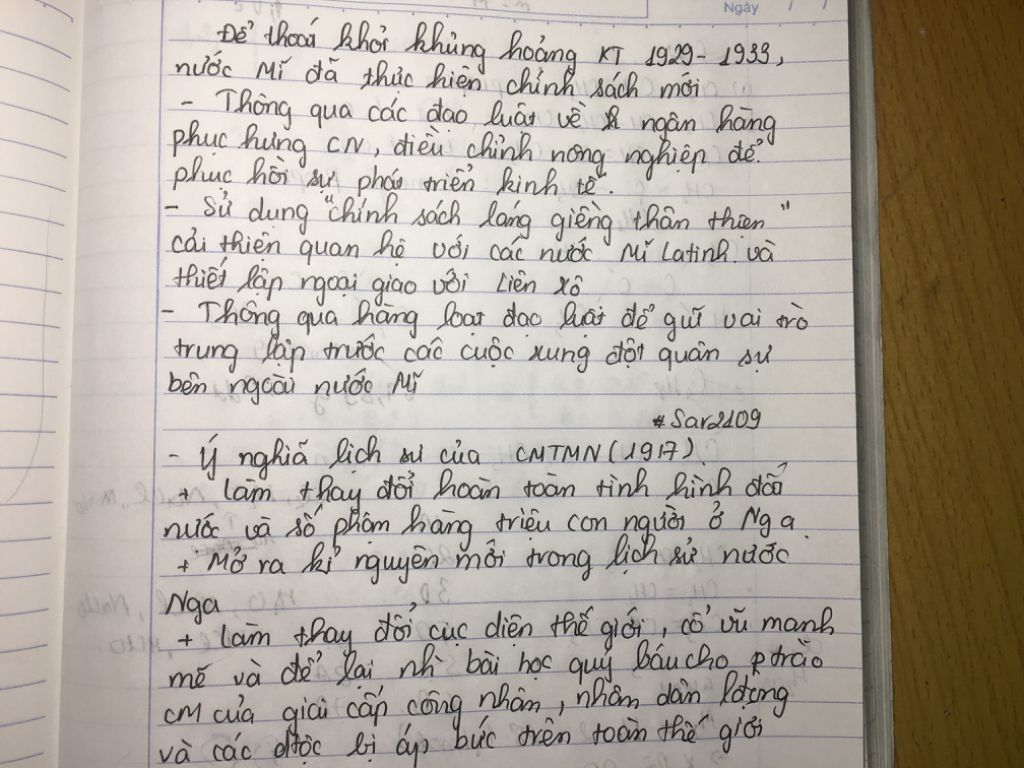 Ngày / /
Để thoát khỏi khủng hoảng KT 1929-1933,
nước Mĩ đã thực hiện chính sách mới
- Thông qua các đạo luật về ngân hàng
phục hưng CN, điều chỉnh nông nghiệp để
phục hồi sự phát triển kinh tế.
- Sử dụng "chính sách láng giềng thân thiện"
cải thiện quan hệ với các nước Mĩ Latinh và
thiết lập ngoại giao với Liên Xô
- Thông qua hàng loạt đạo luật để giữ vai trò
trung lập trước các cuộc xung đột quân sự
bên ngoài nước Mĩ
#Sar2109
- Ý nghĩa lịch sử của CMTMN (1917)
+ Làm thay đổi hoàn toàn tình hình đất
nước và số phận hàng triệu con người ở Nga
+ Mở ra kỉ nguyên mới trong lịch sử nước
Nga
+ Làm thay đổi cục diện thế giới, cổ vũ mạnh
mẽ và để lại nh` bài học quý báu cho ptrào
CM của giai cấp công nhân, nhân dân lđộng
và các dtộc bị áp bức trên toàn thế giới